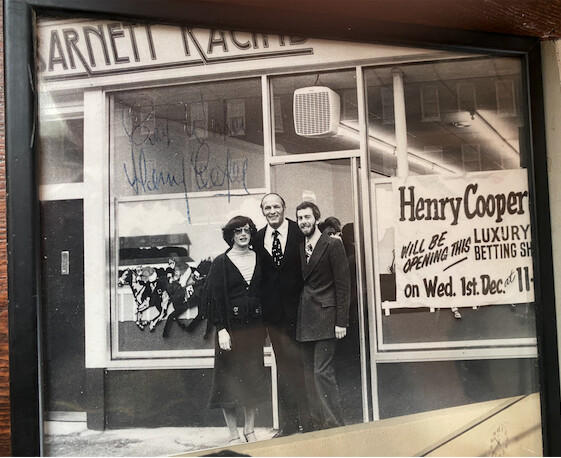 BARNETT RACING
Best Wishes
Henry Cooper
Henry Cooper
WILL BE
OPENING THIS
LUXURY
BETTING SH
on Wed. 1st. Dec. at 11-